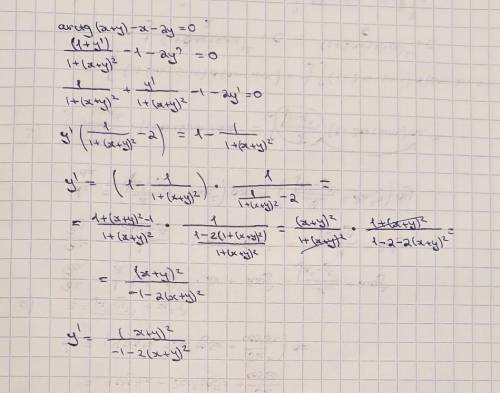 arctg (x+y) - x - 2y = 0
(1+y')/(1+(x+y)²) - 1 - 2y' = 0
1/(1+(x+y)²) + y'/(1+(x+y)²) - 1 - 2y' = 0
y' (1/(1+(x+y)²) - 2) = 1 - 1/(1+(x+y)²)
y' = (1 - 1/(1+(x+y)²)) · 1/(1/(1+(x+y)²) - 2) =
= (1+(x+y)²-1)/(1+(x+y)²) · 1/((1-2(1+(x+y)²))/(1+(x+y)²)) = (x+y)²/(1+(x+y)²) · (1+(x+y)²)/(1-2-2(x+y)²) =
= (x+y)²/(-1-2(x+y)²)
y' = (x+y)²/(-1-2(x+y)²)